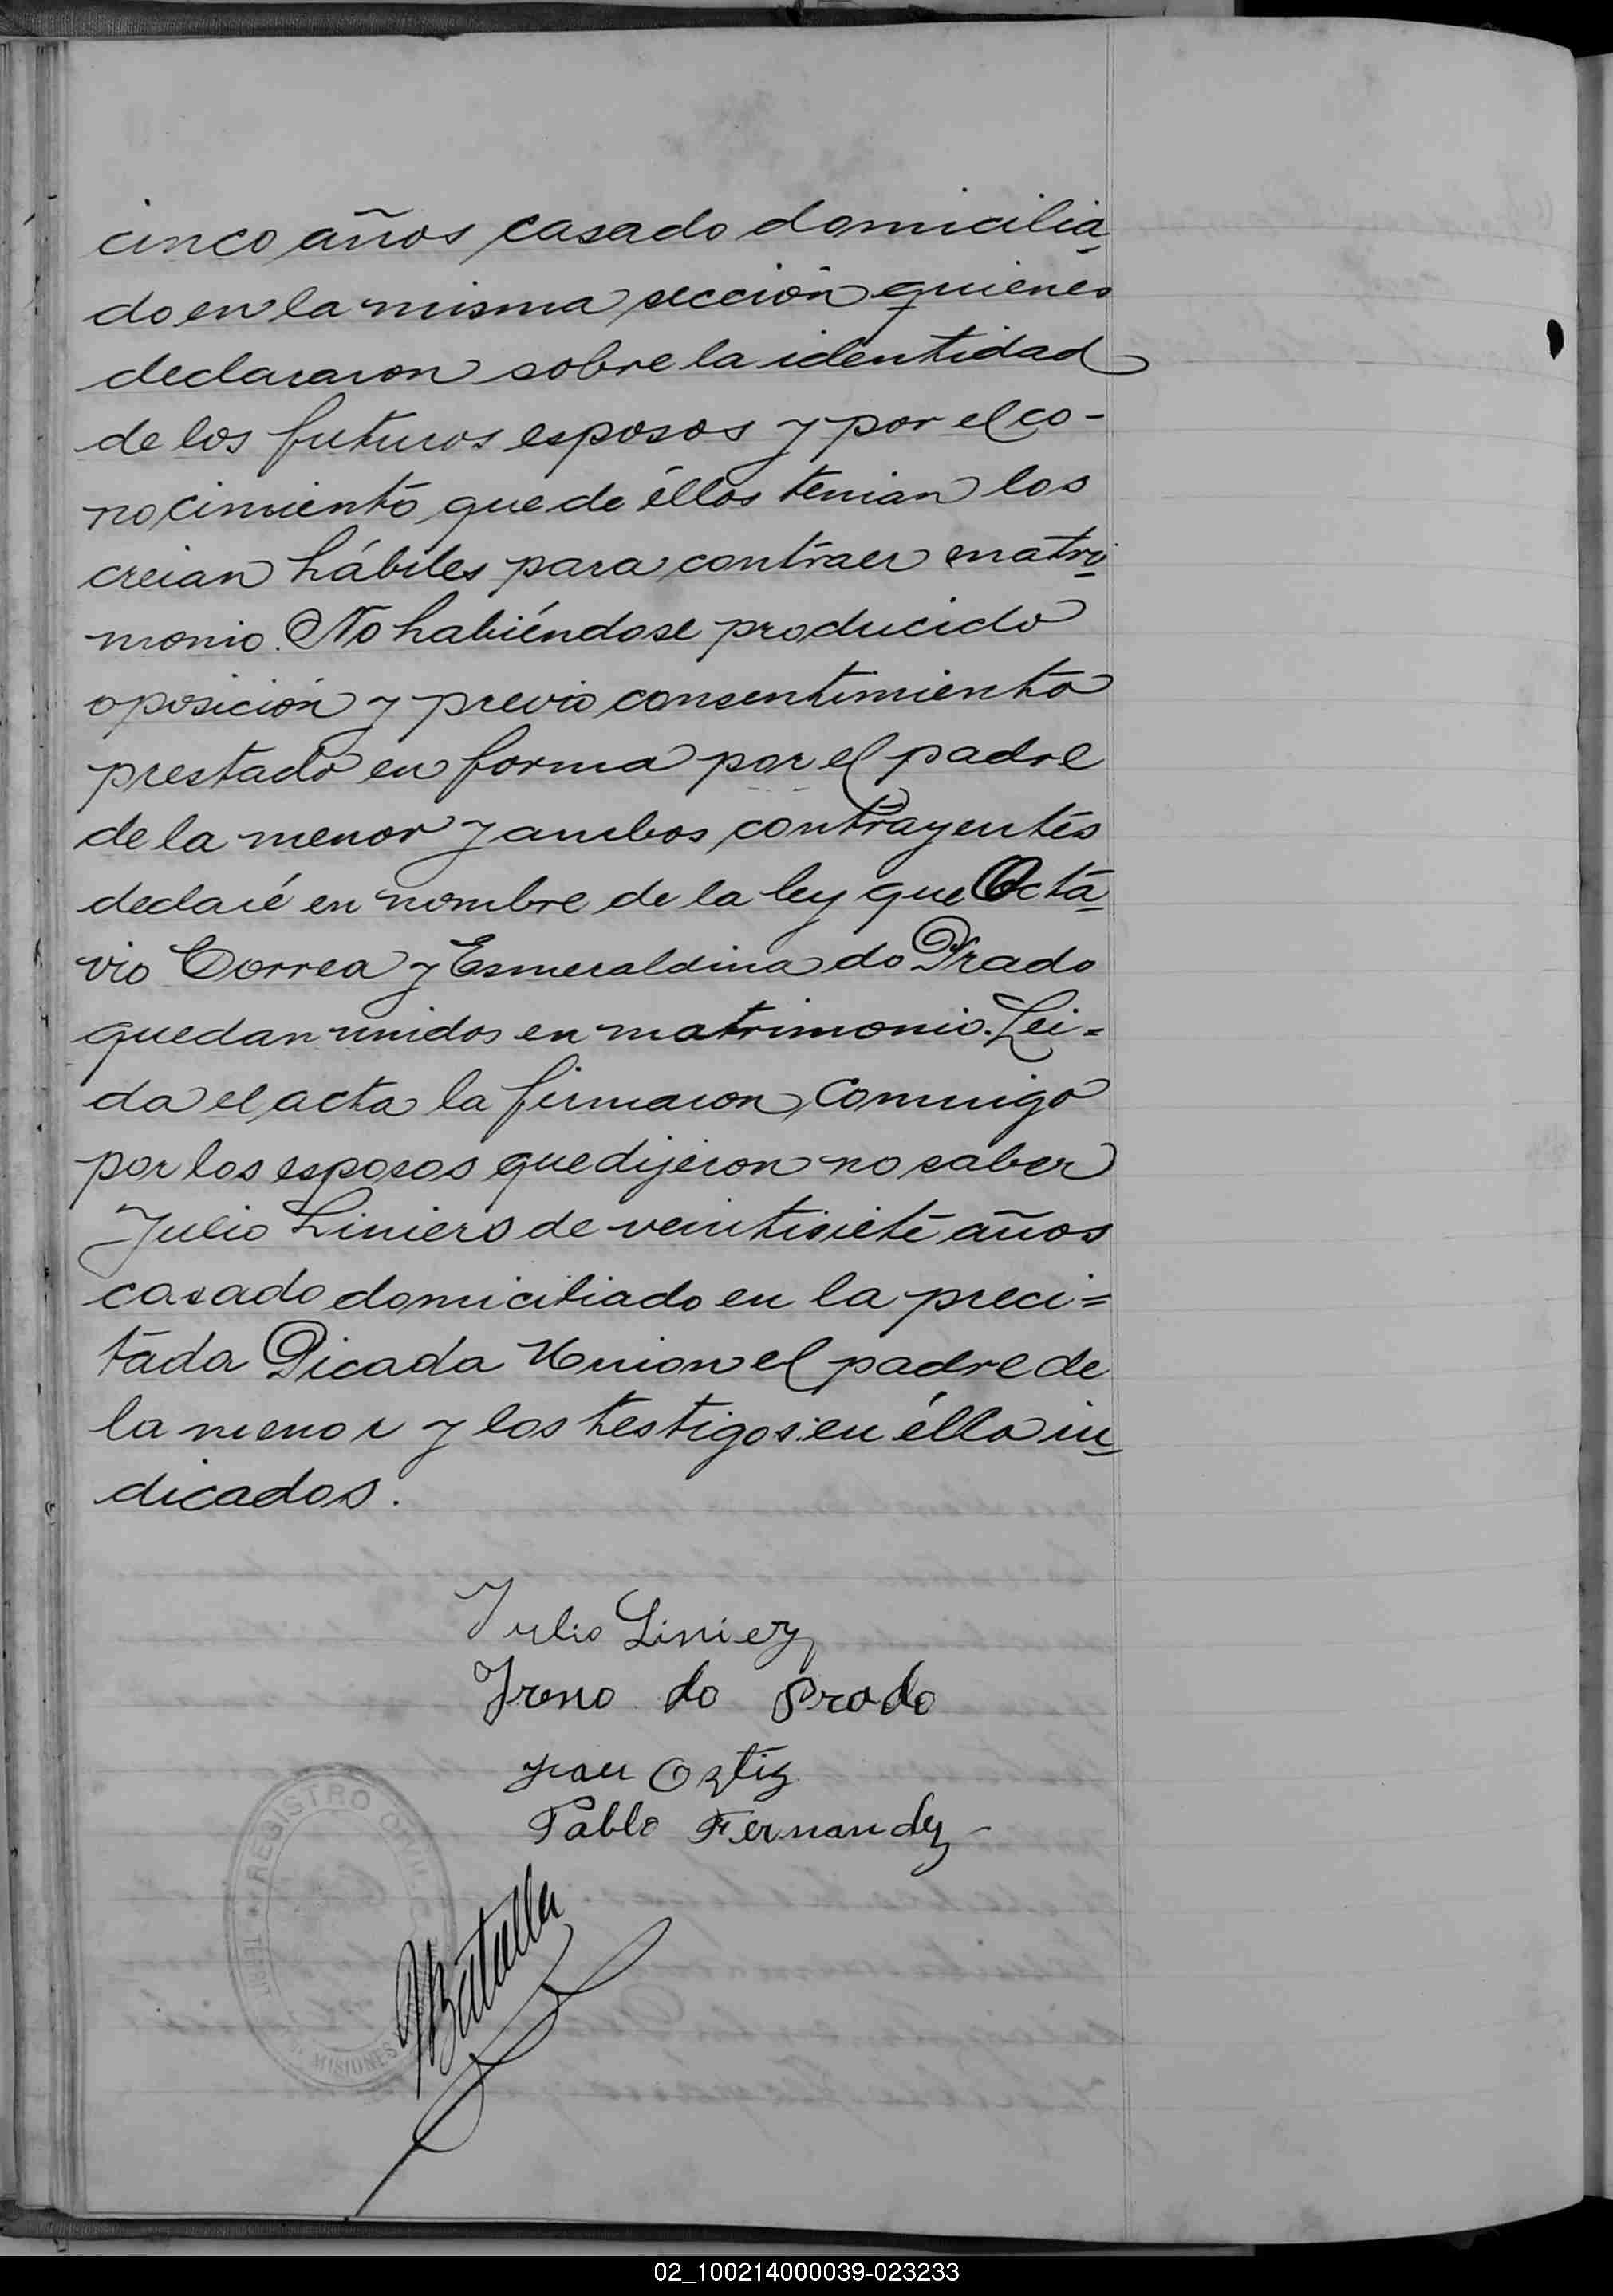 cinco años casado domicilia
do en la misma sección quienes
declararon sobre la identidad
de los futuros esposos y por el co-
nocimiento que de éllos tenian los
creian hábiles para contraer matri
monio. No habiéndose producido
oposición y previo consentimiento
prestado en forma por el padre
de la menor y ambos contrayentes
declaré en nombre de la ley que Octa
vio Correa y Esmeraldina do Prado
quedan unidos en matrimonio. Lei=
da el acta la firmaron conmigo
por los esposos que dijeron no saber
Julio Liniers de veintisiete años
casado domiciliado en la preci=
tada Picada Union el padre de
la menor y los testigos en élla in
dicados.
Julio Liniez
Ireno do Prado
Juan Ortiz
Pablo Fernandez
REGISTRO CIVIL
MISIONES
02_100214000039-023233